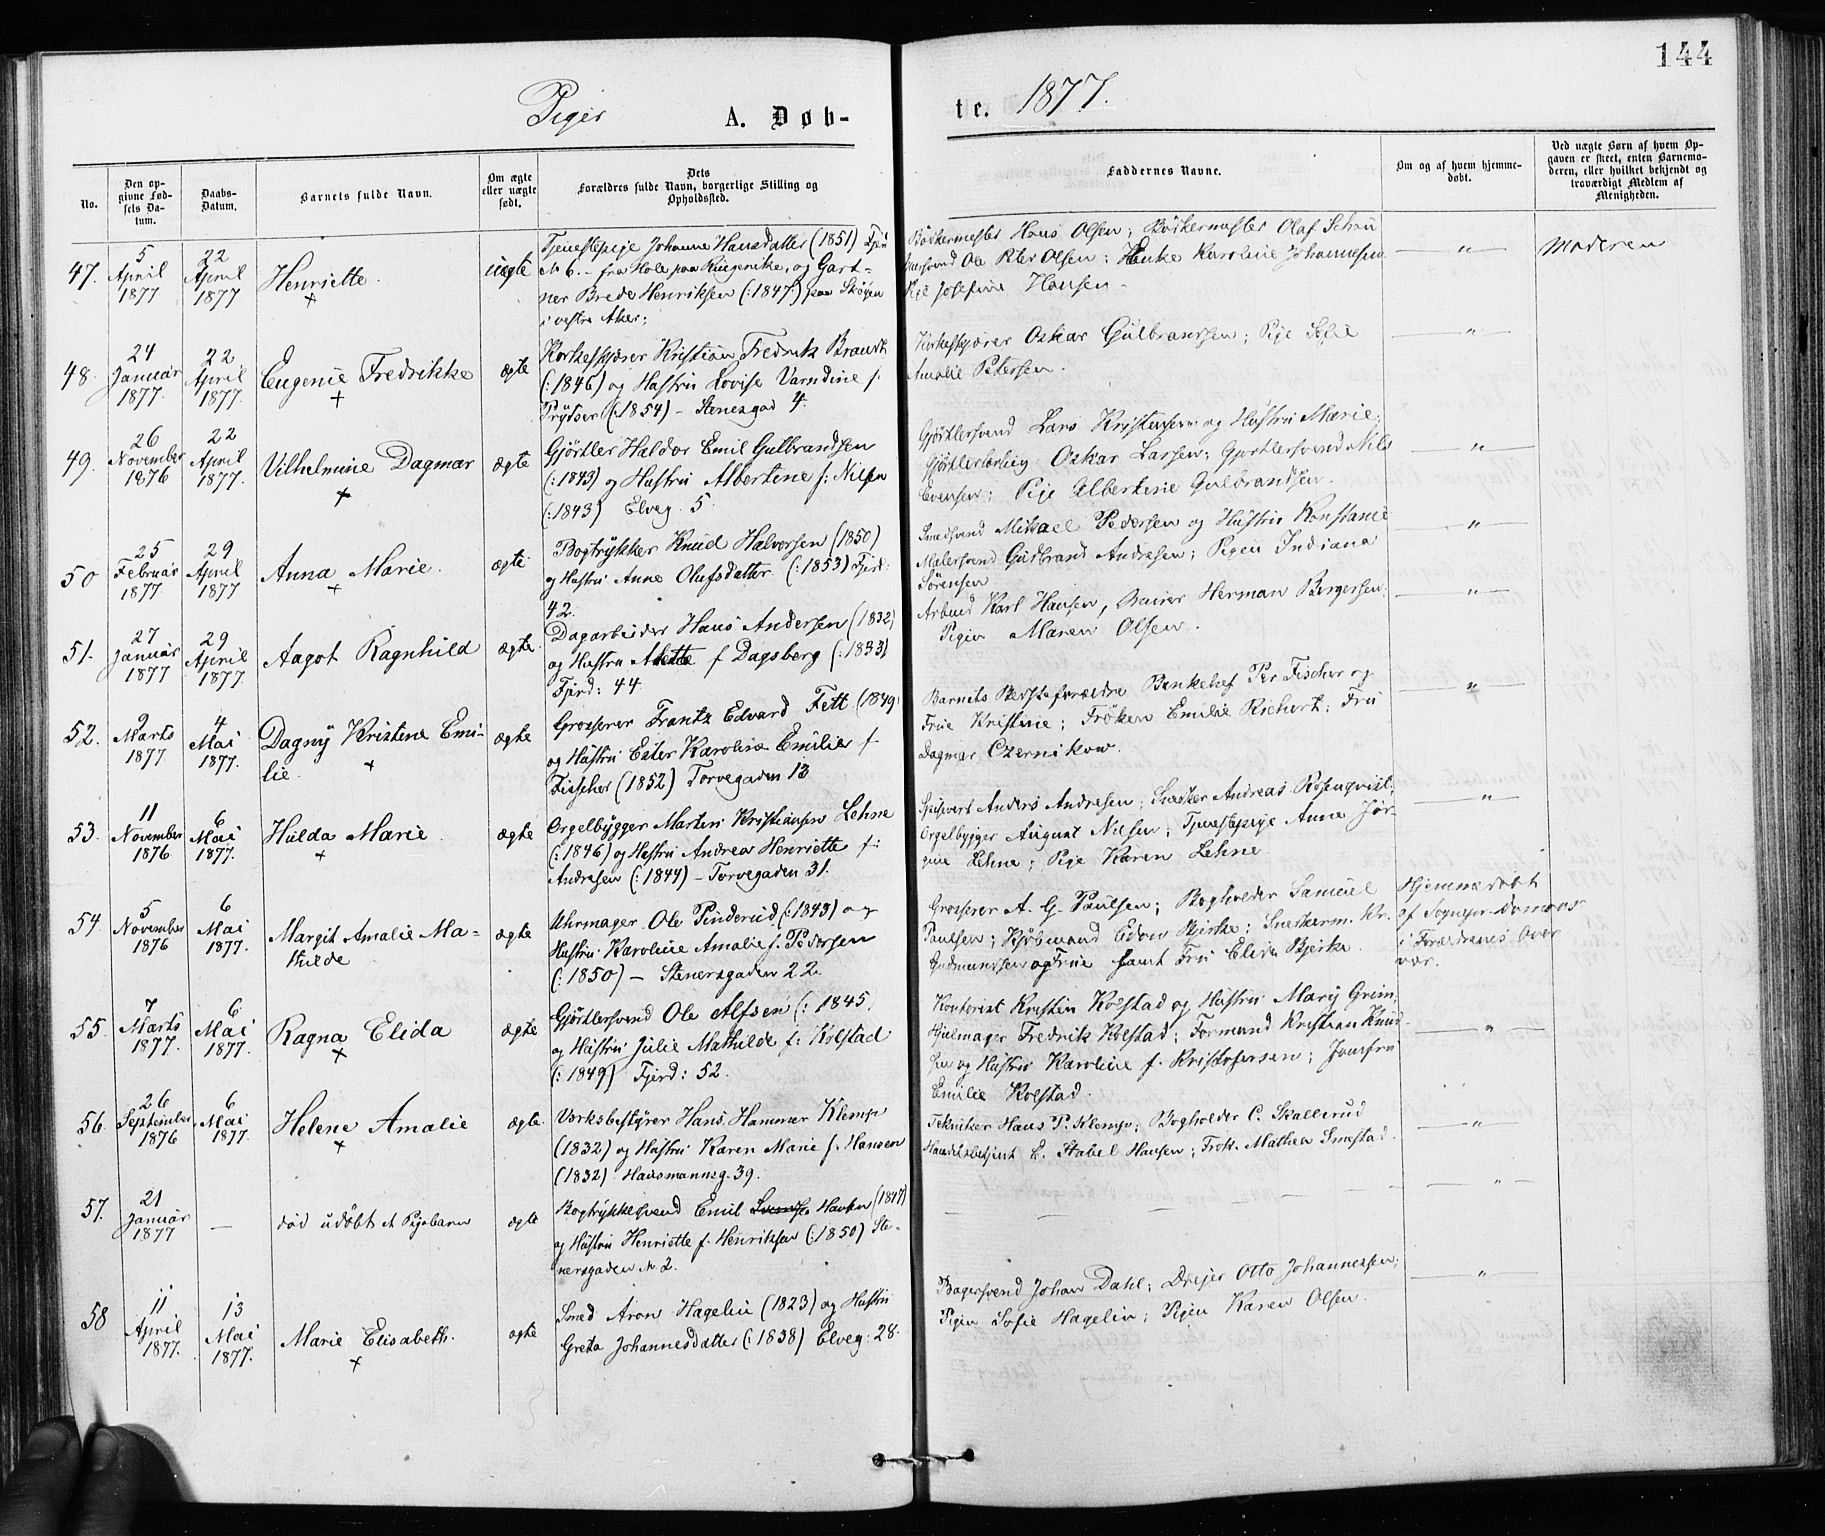 144
Piger A. Døb-
te. 1877.
No.
Den op-
givne Fød-
sels Da-
tum.
Daabs-
Datum.
Barnets fulde Navn.
Om ægte
eller uægte
født.
Dets
Forældres fulde Navn, borgerlige Stilling og
Opholdssted.
Faddernes Navne.
Om og af hvem hjemme-
døbt.
Ved uægte Børn af hvem Op-
gaven er skeet, enten Barnemo-
deren, eller hvilket bekjendt og
troværdigt Medlem af
Menigheden.
47.
5
April
1877
22
April
1877
Henriette.
+
uægte
Tjenestepige Johanne Hansdatter (1851) Fjerd
No 6. - fra Hole paa Ringerike, og Gart-
ner Brede Henriksen (:1847) paa Skøyen
i vestre Aker;
Bødkermester Hans Olsen; Bødkermester Olaf Schou
Ole Peter Olsen; Enke Karoline Johannesen
Pige Josefine Hansen
"
Moderen
48.
24
Januar
1877.
22
April
1877.
Eugenie Fredrikke
+
ægte
Korkeskjærer Kristian Fredrik Brandt
(:1846) og Hustru Lovise Varndine f:
Prydser (:1854) - Stenersgad 4.
Korkeskjærer Oskar Gulbransen; Pige Sofie
Amalie Petersen.
"
49.
26
November
1876
22
April
1877.
Vilhelmine Dagmar
+
ægte
Gjørtler Haldor Emil Gulbrandsen
(:1843) og Hustru Albertine f: Nilsen
(:1843) Elveg. 5.
Gjørtlersvend Lars Kristensen og Hustru Marie;
Gjørtlerlærling Oskar Larsen; Gjørtlersvend Nils
Evensen; Pige Albertine Gulbrandsen.
"
50
25
Februar
1877
29
April
1877
Anna Marie.
+
ægte
Bogtrykker Knud Halvorsen (1850)
og Hustru Anne Olufsdatter (:1853) Fjerd:
42.
Smedsvend Mikael Pedersen og Hustru Konstance
Malersvend Gudbrand Andresen; Pigen Indiana
Sørensen
"
51.
27
Januar
1877
29
April
1877.
Aagot Ragnhild
ægte.
Dagarbeider Hans Andersen (1832)
og Hustru Anette f Dagsberg (:1833)
Fjerd: 44.
Arbmd Karl Hansen, Herman Bergersen,
Pigen Maren Olsen.
"
52.
9
Marts
1877.
4
Mai
1877.
Dagny Kristine Emi-
lie.
+
ægte
Grosserer Frantz Edvard Fett (1849)
og Hustru Ester Karoline Emilie f
Fisscher (1852) Torvegaden 13
Barnets Bedsteforældre Per Fischer og
Frue Kristine; Frøken Emilie Richert; Fru
Dagmar Czernikow.
"
53.
11
November
1876
6
Mai
1877.
Hulda Marie.
+
ægte
Orgelbygger Martin Kristiansen Lehne
(:1846) og Hustru Andrea Henriette f:
Andresen (:1844) - Torvegaden 31.
Anders Andresen; Snedker Andreas Rosenqvist;
Orgelbygger August Nilsen; Tjenestepige Anne Jør-
gine Lehne; Pige Karen Lehne
"
54.
5
November
1876
6
Mai
1877.
Margit Amalie Ma-
thilde
ægte
Uhrmager Ole Pinderud (:1843) og
Hustru Karoline Amalie f. Pedersen
(:1850) - Stenersgaden 22.
Grosserer A. G. Paulsen; Bogholder Samuel
Paulsen; Kjøbmand Edvin Bjerke; Snedkerm. Kr.
Gudmundsen og Frue samt Fru Elise Bjerke.
Hjemmedøbt
af Sognepr.
i Forældrenes Over
vær.
55.
7
Marts
1877.
6
Mai
1877.
Ragna Elida
+
ægte
Gjørtlersvend Ole Alfsen (:1845.
og Hustru Julie Mathilde f: Kolstad
(:1849) Fjerd: 52.
Kontorist Kristen Kolstad og Hustru Mary Grim,
Hjulmager Fredrik Kolstad; Formand Kristian Knud-
sen og Hustru Karoline f. Kristofersen; Jomfru
Emilie Kolstad.
"
56.
26
September
1876
6
Mai
1877.
Helene Amalie
+
ægte.
Værksbestyrer Hans Hammer Klemp
(1832) og Hustru Karen Marie f. Hansen
(1832) Hausmannsg. 39.
Tekniker Hans P. Klemp; Bogholder C. Skallerud
Handelsbetjent E. Stabel Hansen; Frøk. Mathea Smestad.
"
57.
21
Januar
1877
—
død udøbt et Pigebarn
ægte
Bogtrykkersvend Emil Hansen (1847)
og Hustru Henriette f. Henriksen (:1850) Ste-
nersgaden No 2.
— — — —
"
58
11
April
1877.
13
Mai
1877.
Marie Elisabeth.
+
ægte
Smed Aron Hagelin (1823) og Hustru
Greta Johannesdatter (:1838) Elveg: 28.
Bagersvend Johan Dahl; Drejer Otto Johannessen;
Pigen Sofie Hagelin; Pigen Karen Olsen.
"